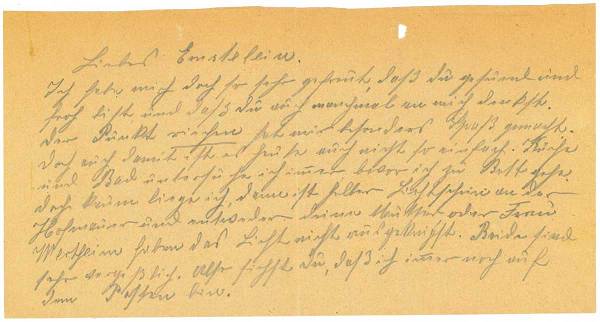 Liebes Ernstelein.
Ich habe mich doch so sehr gefreut, daß du gesund und
froh bist und daß du auch manchmal an mich denkst.
Der Punkt riechen hat mir besonders Spaß gemacht.
Doch auch damit ist es heute auch nicht so einfach. Küche
und Bad untersuche ich immer bevor ich zu Bett gehe.
doch kaum liege ich, dann ist heller Lichtschein an der
Hofmauer und entweder deine Mutter oder Frau
Wertheim haben das Licht nicht ausgeknipst. Beide sind
sehr vergeßlich. Also siehst du, daß ich immer noch auf
dem Posten bin.